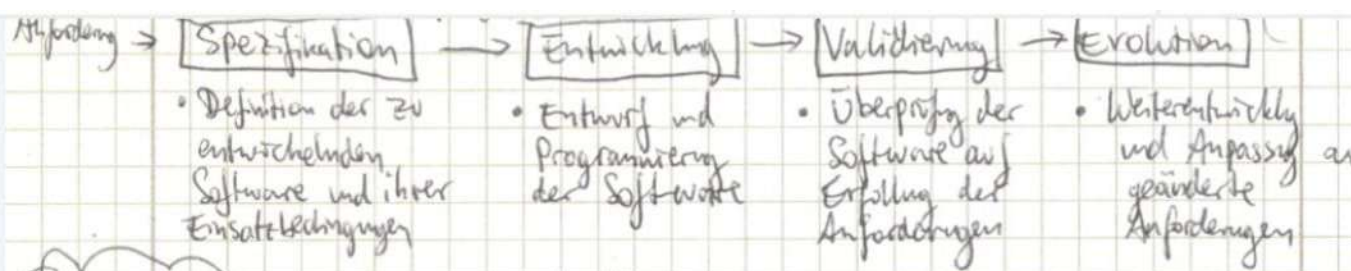 Anforderung → Spezifikation → Entwicklung → Validierung → Evolution
• Definition der zu
entwickelnden
Software und ihrer
Einsatzbedingungen
• Entwurf und
Programmierung
der Software
• Überprüfung der
Software auf
Erfüllung der
Anforderungen
• Weiterentwicklung
und Anpassung an
geänderte
Anforderungen